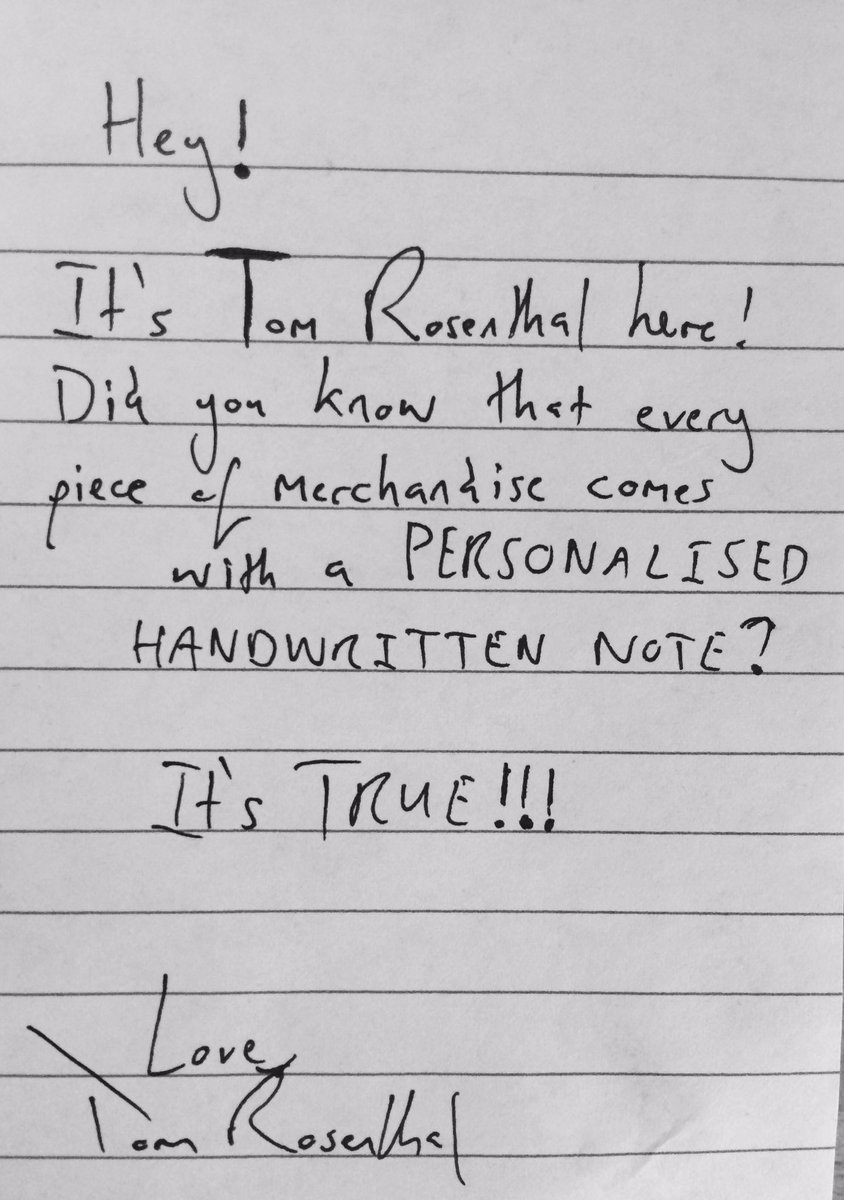 Hey!
It's Tom Rosenthal here!
Did you know that every
piece of merchandise comes
with a PERSONALISED
HANDWRITTEN NOTE?
It's TRUE!!!
Love,
Tom Rosenthal